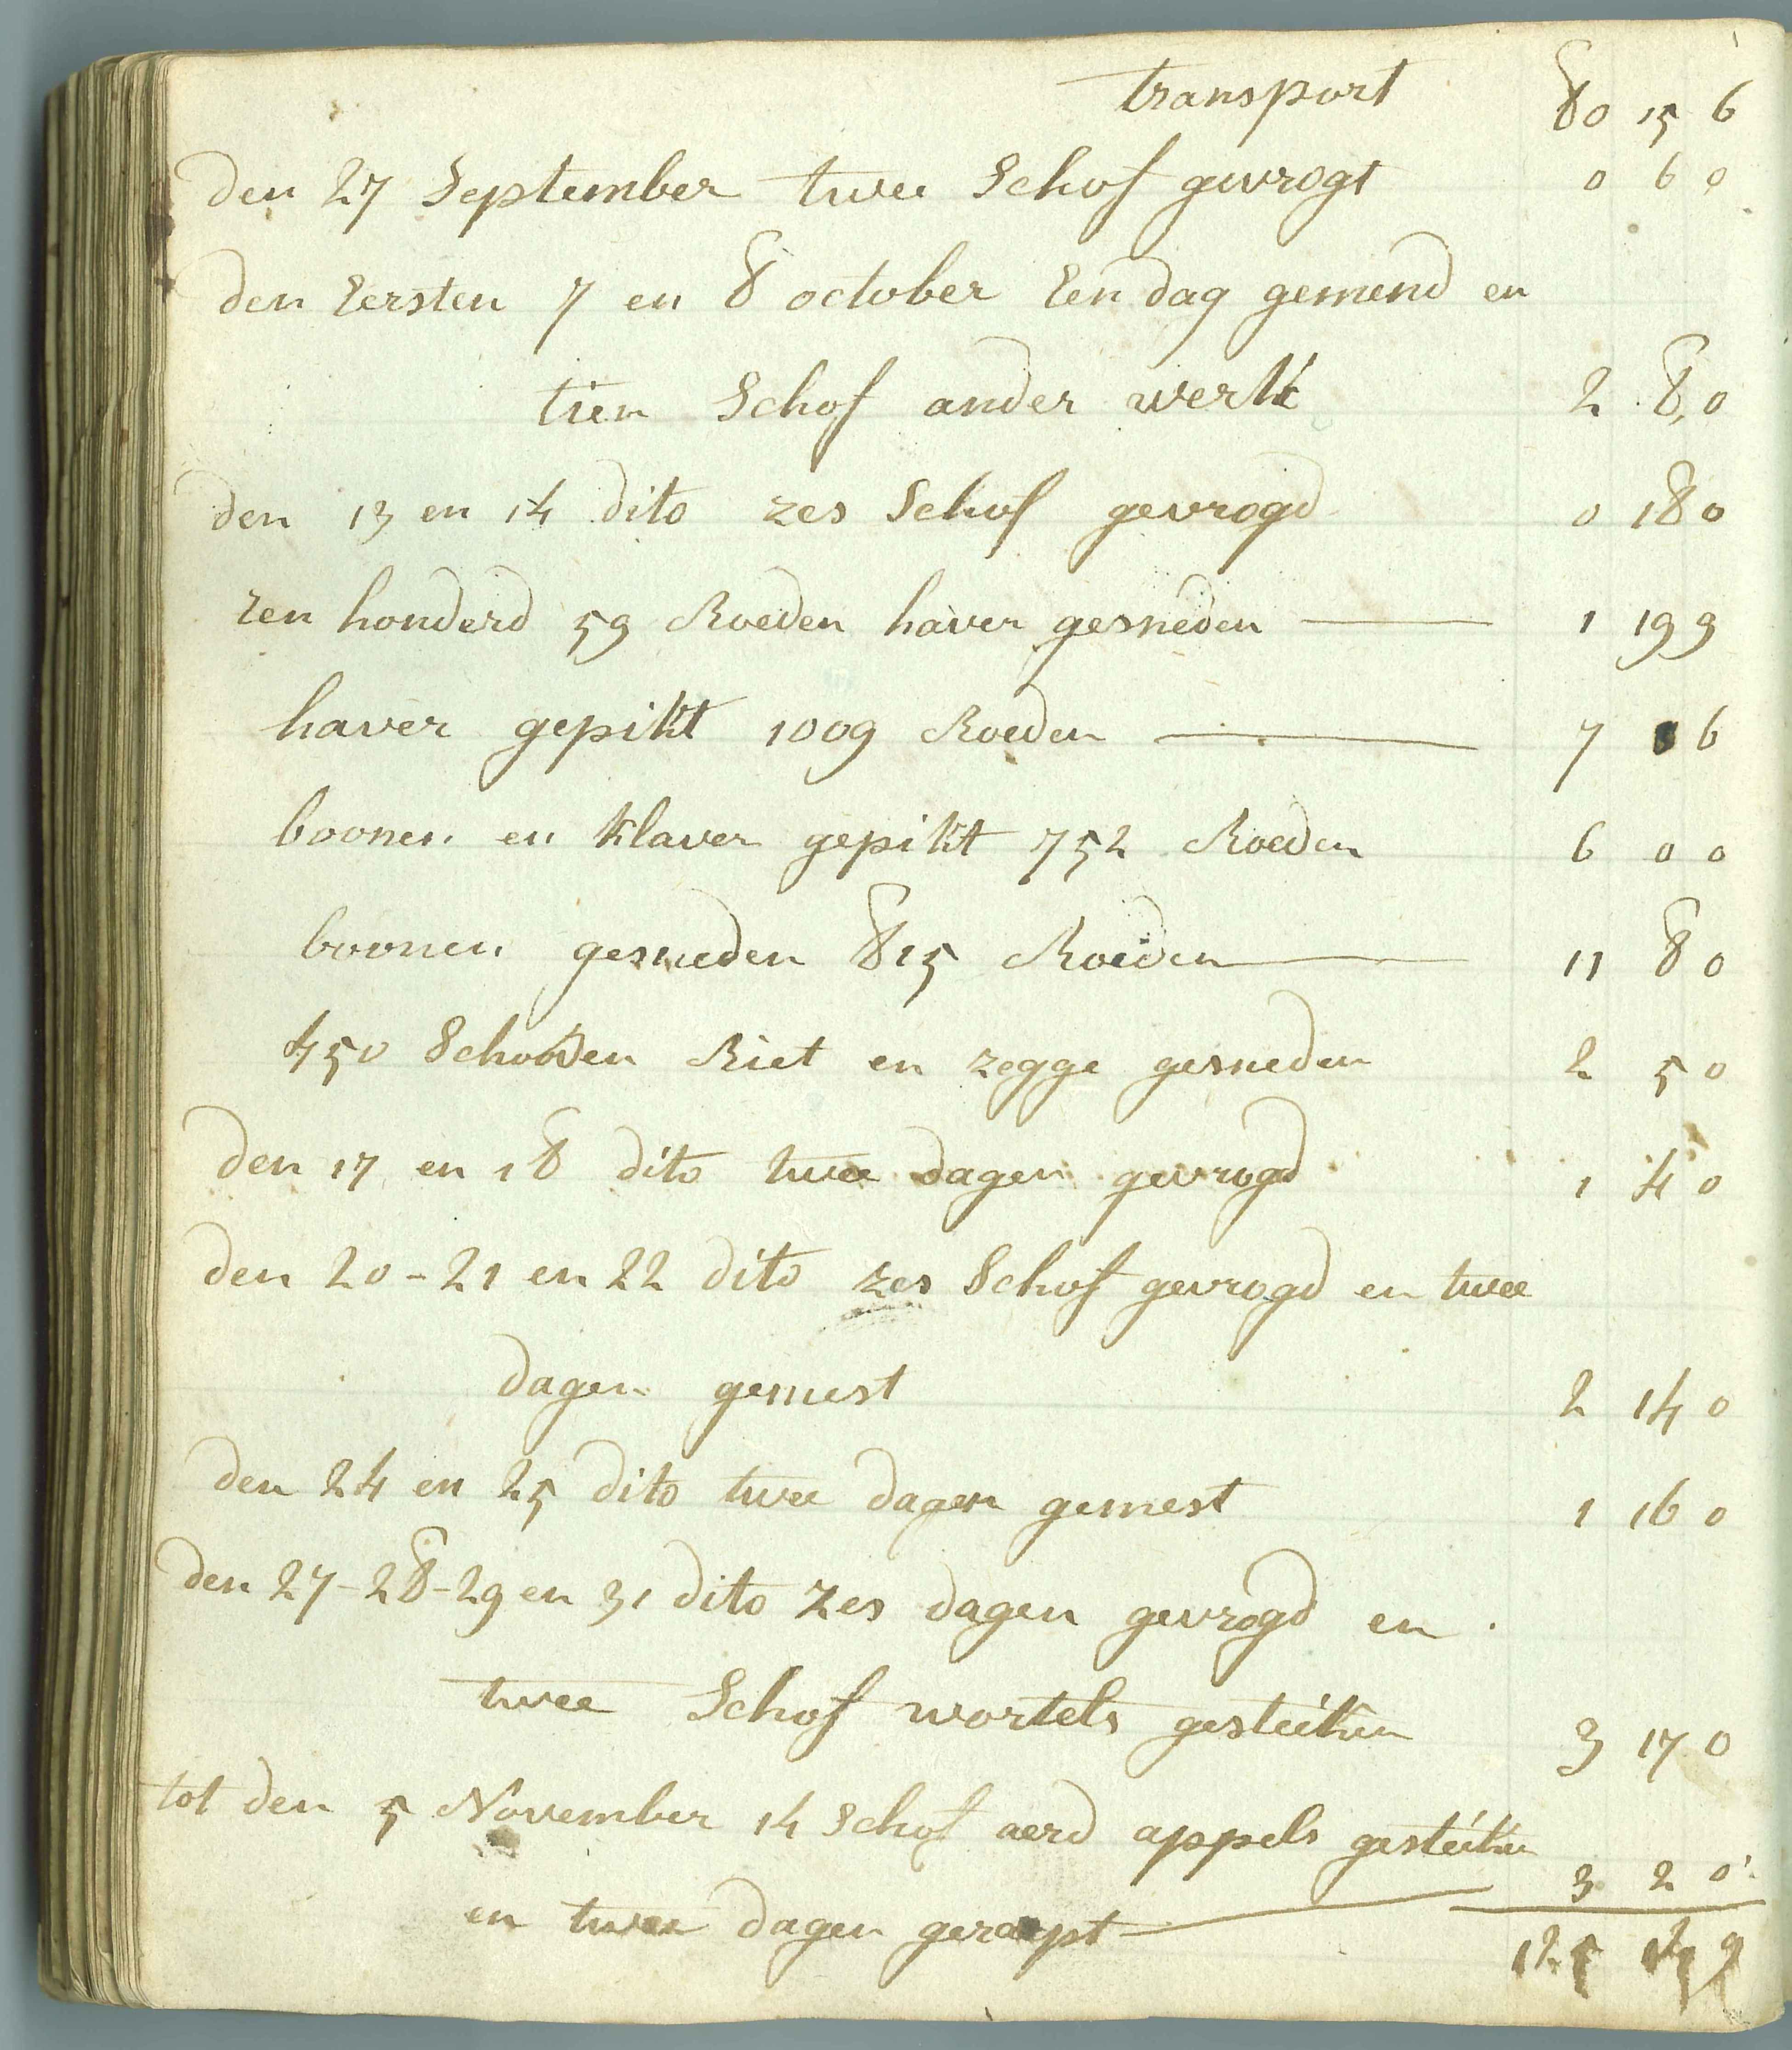 transport 80 15 6
den 27 September twee Schof gevrogt 0 6 0
den Eersten 7 en 8 october Een dag gemend en
tien Schof ander werk 2 8 0
den 13 en 14 dito zes Schof gevrogd 0 18 0
Een honderd 59 Roeden haver gesneden — 1 19 9
haver gepikt 1009 Roeden — 7 6
boonen en klaver gepikt 752 Roeden 6 0 0
boonen gesneden 815 Roeden — 11 8 0
450 Schoven Riet en zegge gesneden 2 5 0
den 17 en 18 dito twee dagen gevrogd 1 4 0
den 20-21 en 22 dito zes Schof gevrogd en twee
dagen gemest 2 14 0
den 24 en 25 dito twee dagen gemest 1 16 0
den 27-28-29 en 31 dito zes dagen gevrogd en
twee Schof wortels gesteiken 3 17 0
tot den 5 November 14 Schof aerd appels gesteiken
en twee dagen geraept — 3 2 0